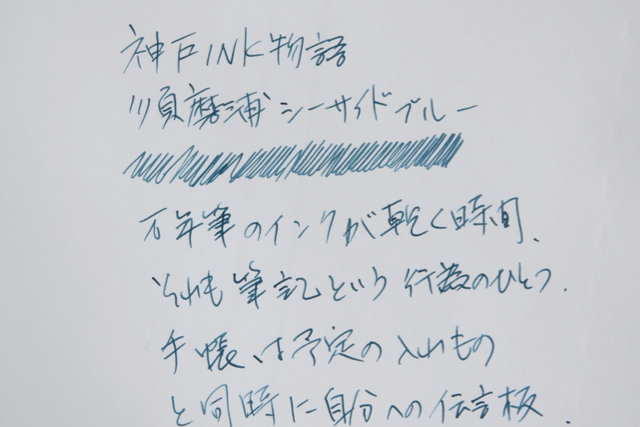 神戸INK物語
須磨浦シーサイドブルー
万年筆のインクが乾く時間、
それも筆記という行為のひとつ.
手帳は予定の入れもの
と同時に自分への伝言板.